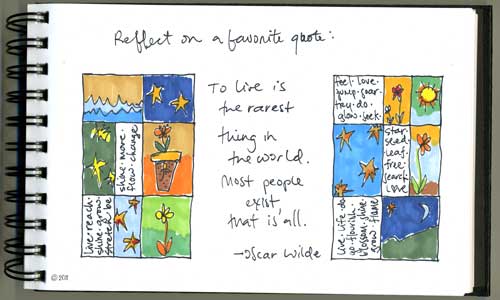 Reflect on a favorite quote:
shine. move.
flow. change
live. reach.
shine. grow.
stretch. be
To live is
the rarest
thing in
the world.
Most people
exist,
that is all.
→ Oscar Wilde
feel. love.
jump. soar.
try. do.
glow. seek.
star.
seed.
leaf.
tree.
search.
love
live. life. do
go. flourish.
blossom. shine.
grow. flame
© 2011